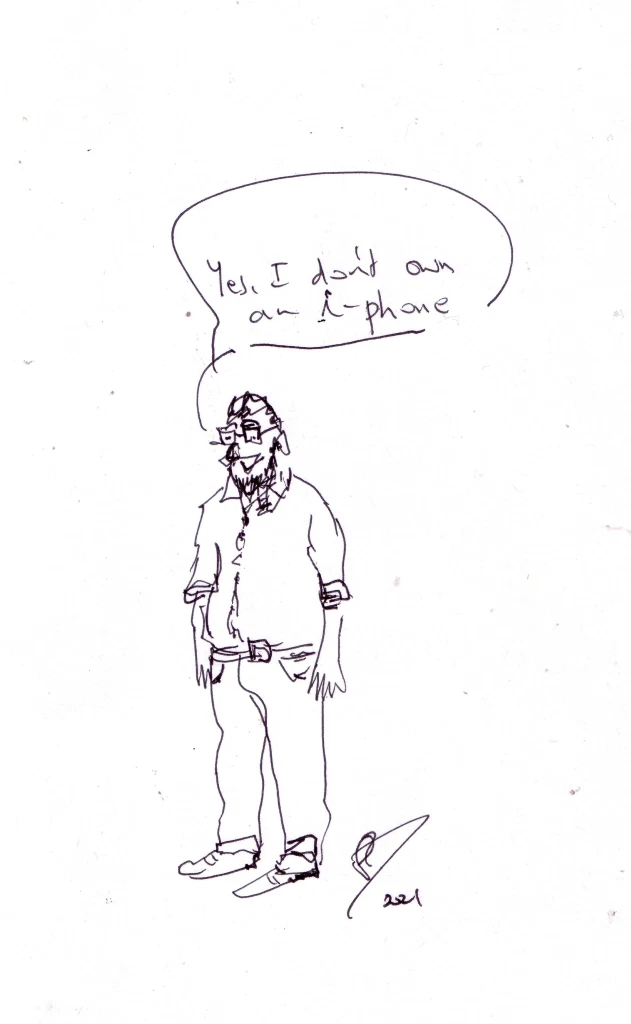 Yes, I don't own
an i-phone
2021